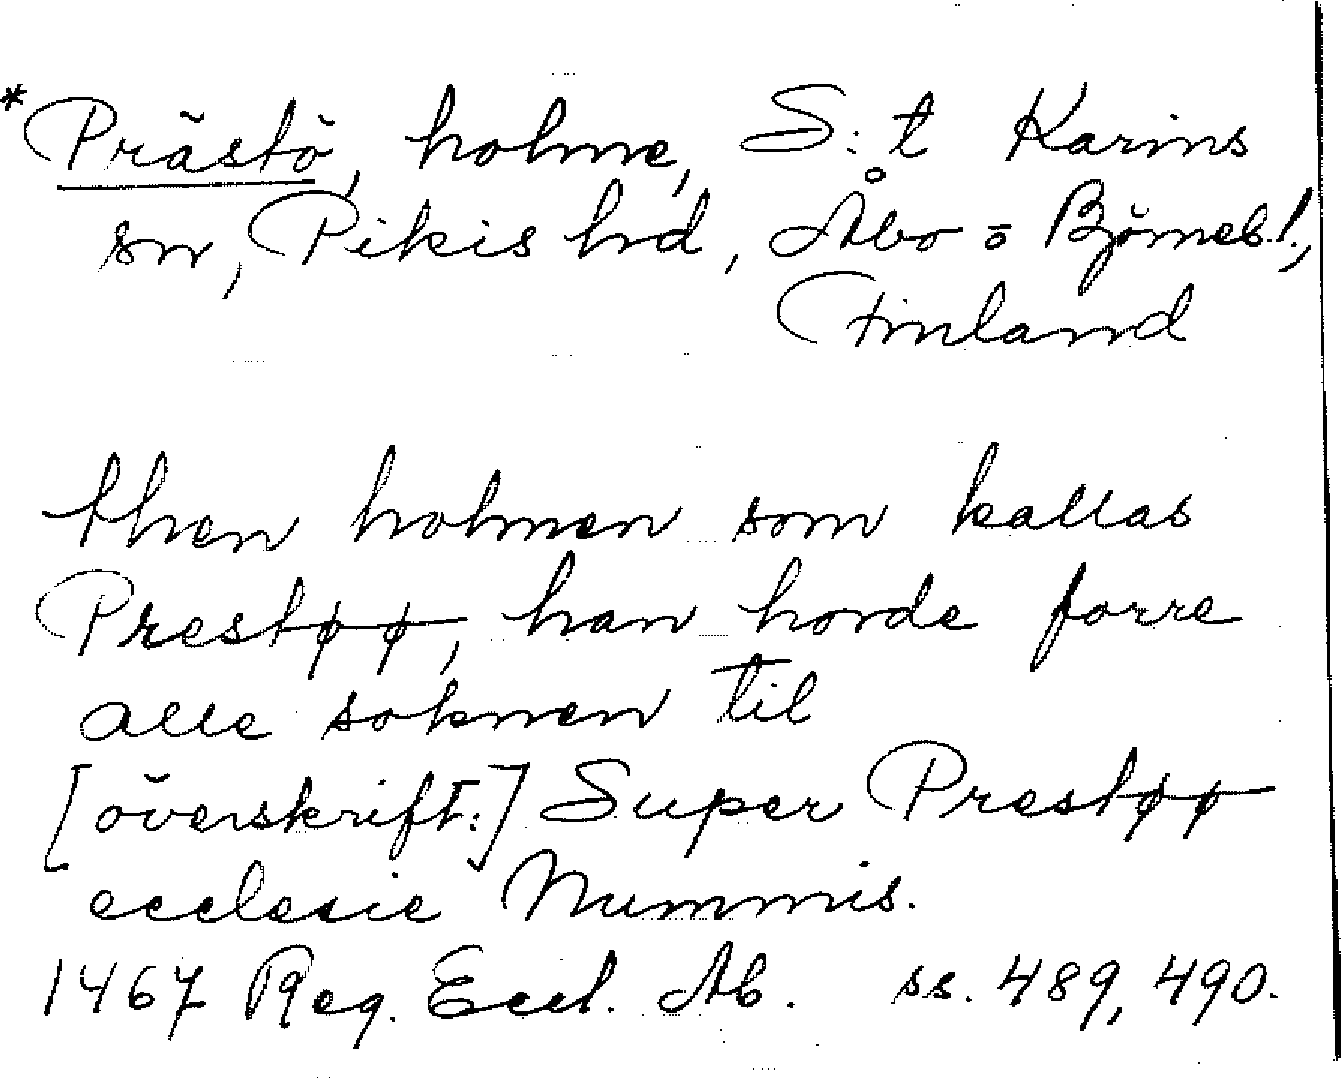 *Prästö, holme, S:t Karins
sn, Pikis hd, Åbo o Björneb.l.,
Finland
then holmen som kallas
Prestøø, han horde forre
alle soknen til
[överskrift:] Super Prestøø
ecclesie Nummis.
1467 Reg. Eccl. Ab. ss. 489, 490.